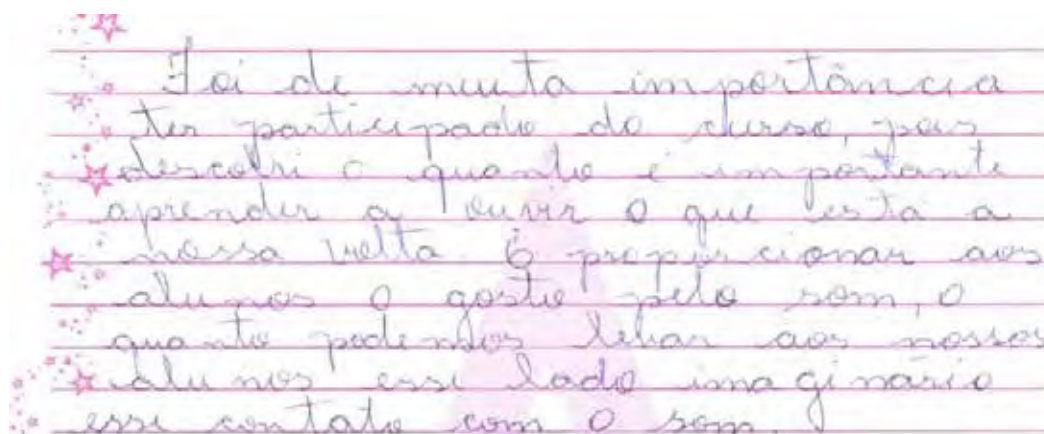 Foi de muita importância
ter participado do curso, pois
descobri o quanto é importante
aprender a ouvir o que está a
nossa volta. É proporcionar aos
alunos o gosto pelo som, o
quanto podemos levar aos nossos
alunos esse lado imaginário
esse contato com o som.